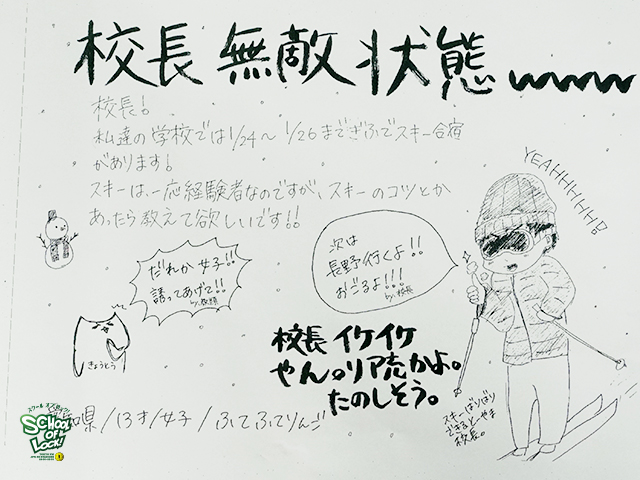 校長 無敵 状態 wwww
校長！
私達の学校では1/24～1/26までぎふでスキー合宿
があります！
スキーは、一応経験者なのですが、スキーのコツとか
あったら教えて欲しいです!!
YEAHHHHHH!
だれか女子!!
誘ってあげて!!
次は
長野行くよ!!
おごるよ!!!
by.校長
きょうとう
校長イケイケ
やん。リア充かよ。
たのしそう。
スキーばりばり
できるとやま
校長。
知県/13才/女子/ふてふてりんご
SCHOOL
OF
LOCK!